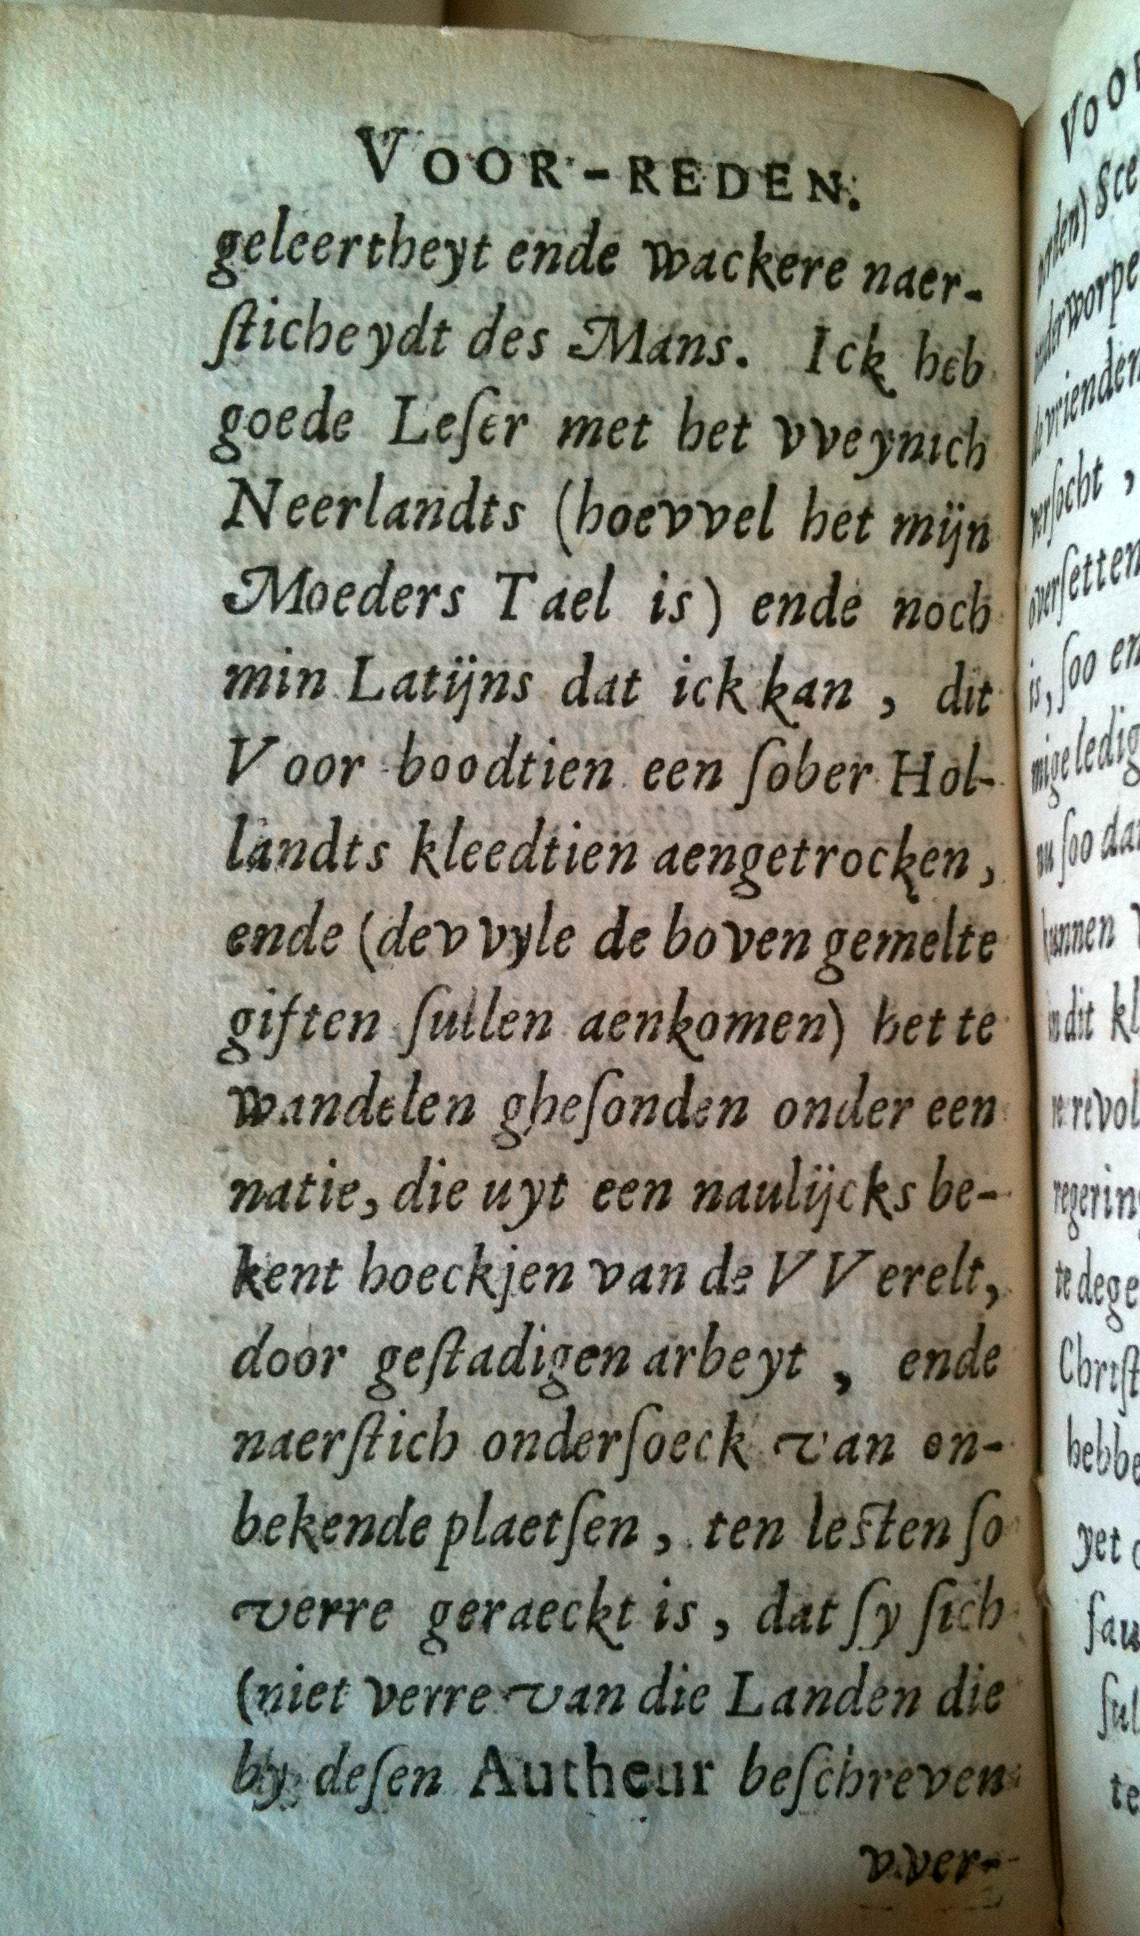 VOOR-REDEN.
geleertheyt ende wackere naer-
ſticheydt des Mans. Ick heb
goede Leſer met het vveynich
Neerlandts (hoevvel het mijn
Moeders Tael is) ende noch
min Latijns dat ick kan, dit
Voor boodtien een ſober Hol-
landts kleedtien aengetrocken,
ende (devvyle de boven gemelte
giften ſullen aenkomen) het te
wandelen gheſonden onder een
natie, die uyt een naulijcks be-
kent hoeckjen van de VVerelt,
door geſtadigen arbeyt, ende
naerſtich onderſoeck van on-
bekende plaetſen, ten leſten ſo
verre geraeckt is, dat ſy ſich
(niet verre van die Landen die
by deſen Autheur beſchreven
vver-
VOOR
Sce
vrienden
verſocht,
overſetten
is, ſoo en
mige ledig
nu ſoo da
kunnen
in dit kl
revol
regerin
te dege
Chriſt
hebbe
yet
ſau
ſul
te